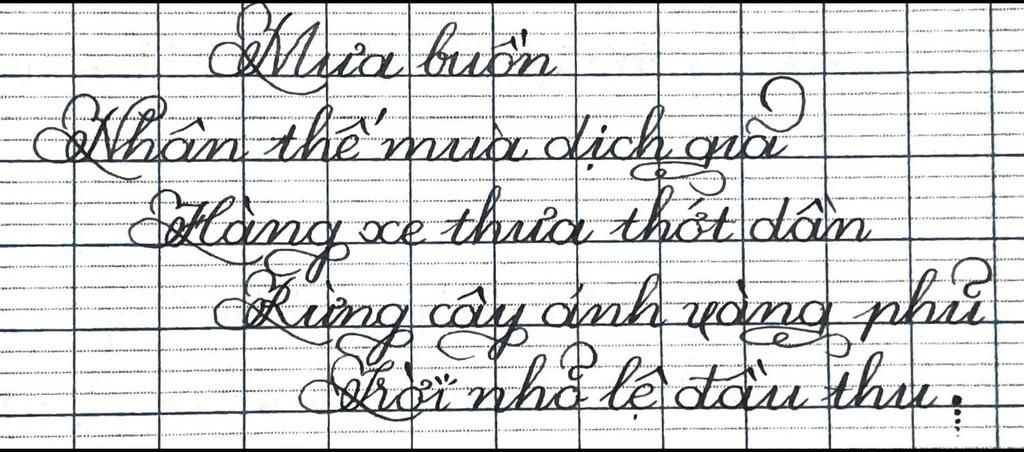 Mưa buồn
Nhân thế mùa dịch giã
Hàng xe thưa thớt dần
Rừng cây ánh vàng phủ
Trời nhỏ lệ đầu thu.